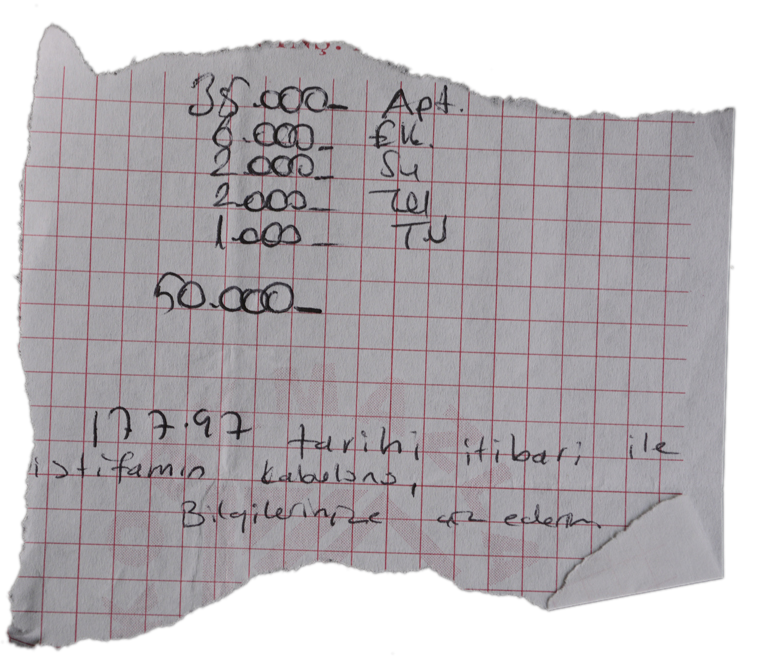 38.000- Apt.
6.000- Elk.
2.000- Su
2.000- Tel
1.000- TV
50.000-
17 7.97 tarihi itibari ile
istifamin kabulono,
Bilgilerinize arz ederim.